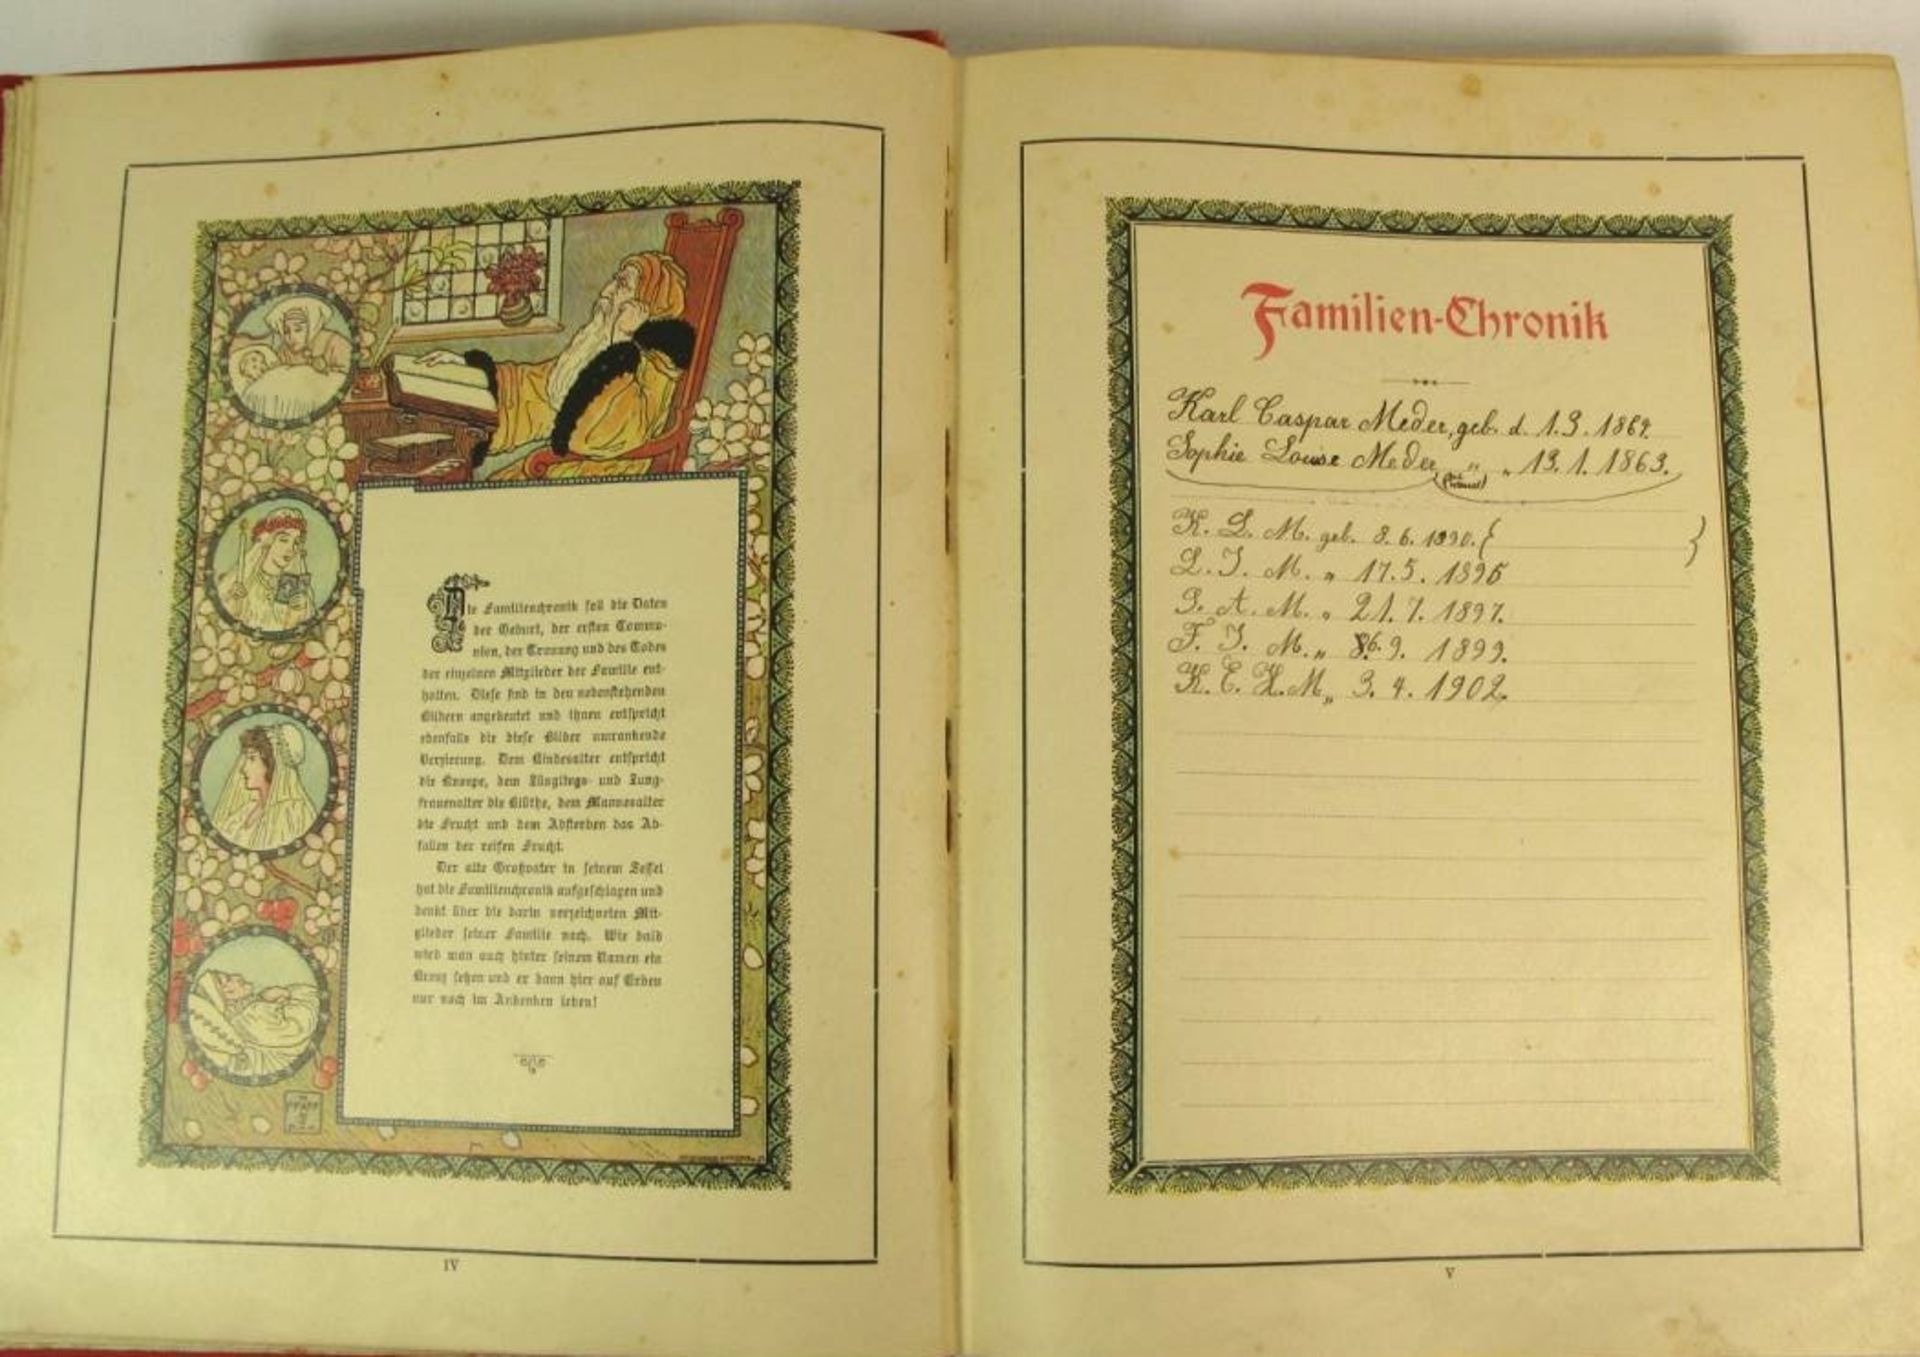 Die Familienchronik soll die Daten
der Geburt, der ersten Commu-
nion, der Trauung und des Todes
der einzelnen Mitglieder der Familie ent-
halten. Diese sind in den nebenstehenden
Bildern angedeutet und ihnen entspricht
ebenfalls die diese Bilder umrankende
Verzierung. Dem Kindesalter entspricht
die Knospe, dem Jünglings- und Jung-
frauenalter die Blüthe, dem Mannesalter
die Frucht und dem Absterben das Ab-
fallen der reifen Frucht.
Der alte Großvater in seinem Sessel
hat die Familienchronik aufgeschlagen und
denkt über die darin verzeichneten Mit-
glieder seiner Familie nach. Wie bald
wird man auch hinter seinem Namen ein
Kreuz setzen und er dann hier auf Erden
nur noch im Andenken leben!
IV
Familien-Chronik
Karl Caspar Meder, geb. d. 1.3.1869.
Sophie Louise Meder „ „ 13.1.1863.
K. L. M. geb. 8.6.1890.
L. J. M. „ 17.5.1896
A. M. „ 21.7.1897.
F. J. M. „ 6.9.1899.
K. E. H. M „ 3.4.1902.
V